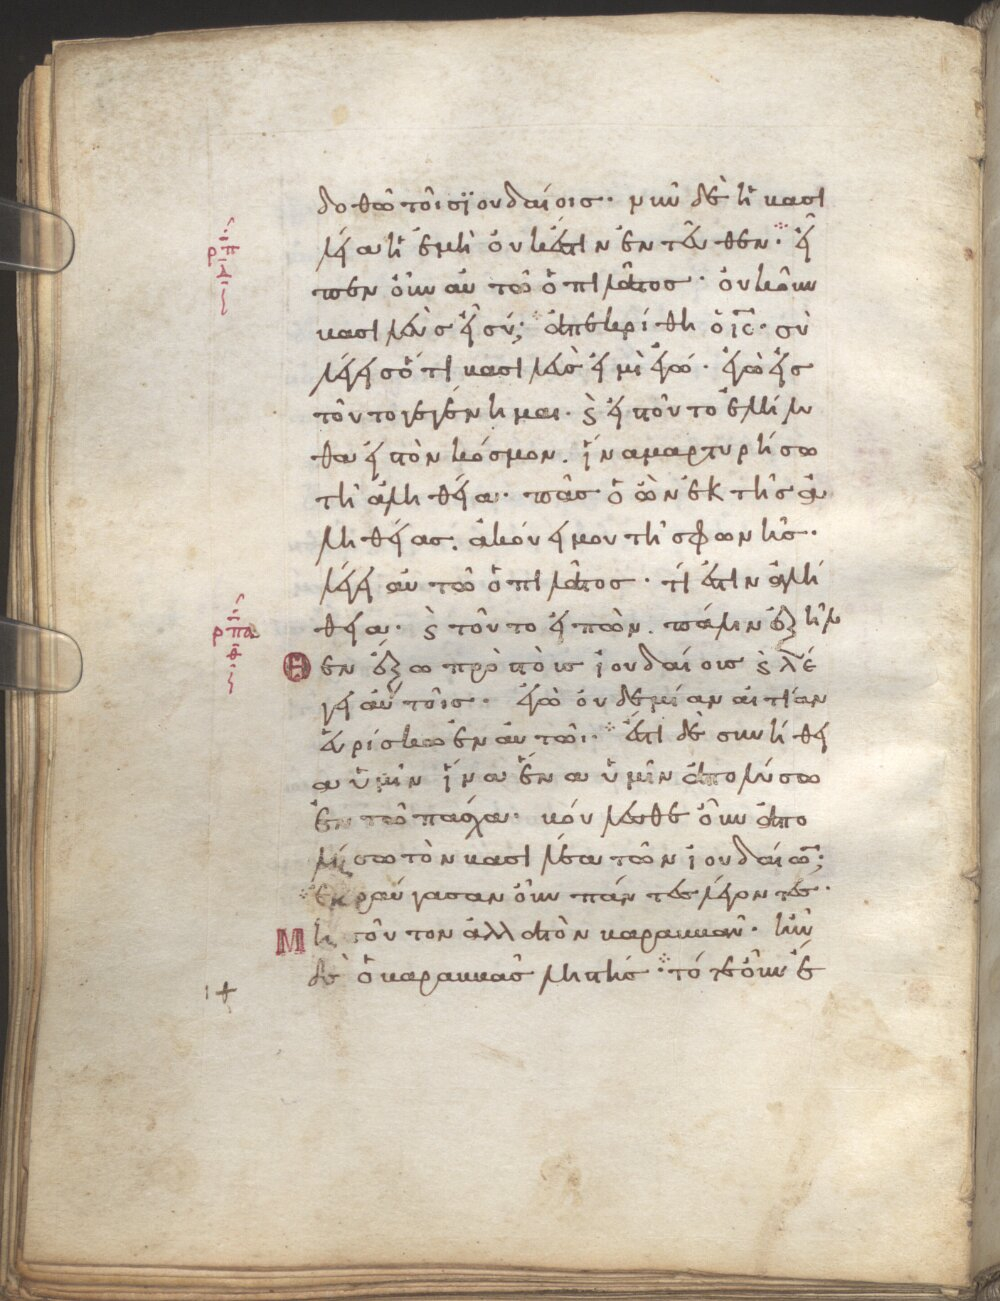 δοθῶ τοῖς ϊουδαίοις· νῦν δὲ ἡ βασι
λεία ἡ ἐμὴ οὐκ ἔστιν ἐντεῦθεν· εἶ
πεν οὖν αὐτῶ ὁ πιλάτος· οὐκοῦν
βασιλεὺς εἶ σύ; ἀπεκρίθη ὁ ις̅· σὺ
λέγεις ὅτι βασιλεύς εἰμὶ ἐγώ· ἐγὼ εἰς
τοῦτο γεγέννημαι· ϗ εἰς τοῦτο ἐλήλυ
θα εἰς τὸν κόσμον. ἵνα μαρτυρήσω
τῆ ἀληθεία· πᾶς ὁ ὢν ἐκ τῆς ἀ
ληθείας. ἀκούει μου τῆς φωνῆς·
λέγει αὐτῶ ὁ πιλάτος· τί ἐστιν ἀλή
θεια· ϗ τοῦτο εἰπὼν. πάλιν ἐξῆλ
θεν ἔξω πρὸς τοὺς ἰουδαίους ϗ λέ
γει αὐτοῖς· ἐγὼ οὐδεμίαν αἰτίαν
εὑρίσκω ἐν αὐτῶ· ἔστι δὲ συνήθει
α ὑμῖν ἵνα ἕνα ὑμῖν ἀπολύσω
ἐν τῶ πάσχα· βούλεσθε οὖν ἀπο
λύσω τὸν βασιλέα τῶν ἰουδαίων;
ἐκραύγασαν οὖν πάντες λέγοντες·
Μὴ τοῦτον ἀλλὰ τὸν βαραββᾶν· ἦν
δὲ ὁ βαραββᾶς ληστής· τότε οὖν ἔ